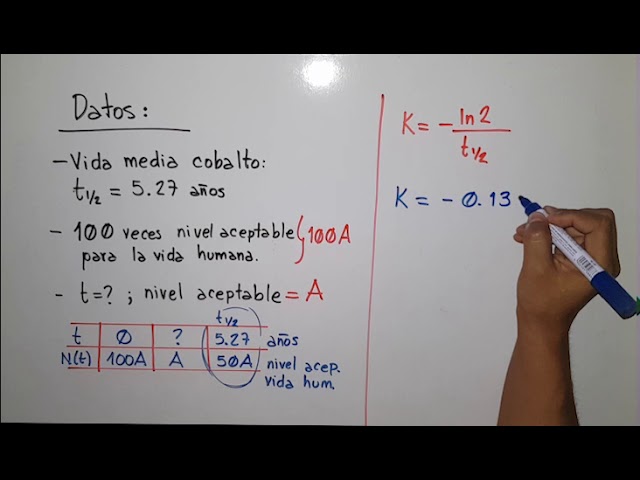 Datos:
- Vida media cobalto:
t1/2 = 5.27 años
- 100 veces nivel aceptable para la vida humana. } 100A
- t=? ; nivel aceptable = A
t1/2
t 0 ? 5.27 años
N(t) 100A A 50A nivel acep.
vida hum.
K = - ln 2 / t1/2
K = - 0.13